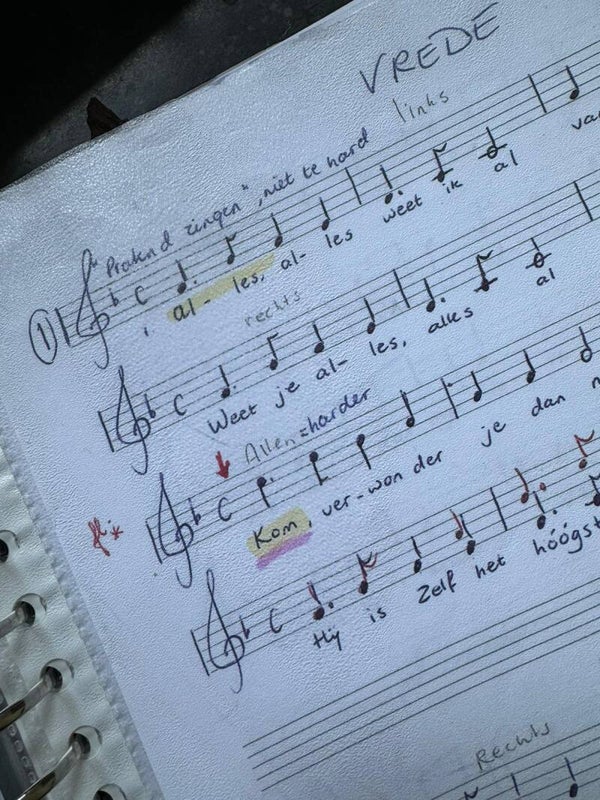 VREDE
"Pratend zingen", niet te hard links
1
C
1, al- les, al- les weet ik al van
rechts
C
Weet je al- les, alles al
Allen = harder
C
Kom, ver-won der je dan
C
Hij is Zelf het hóógst
Rechts